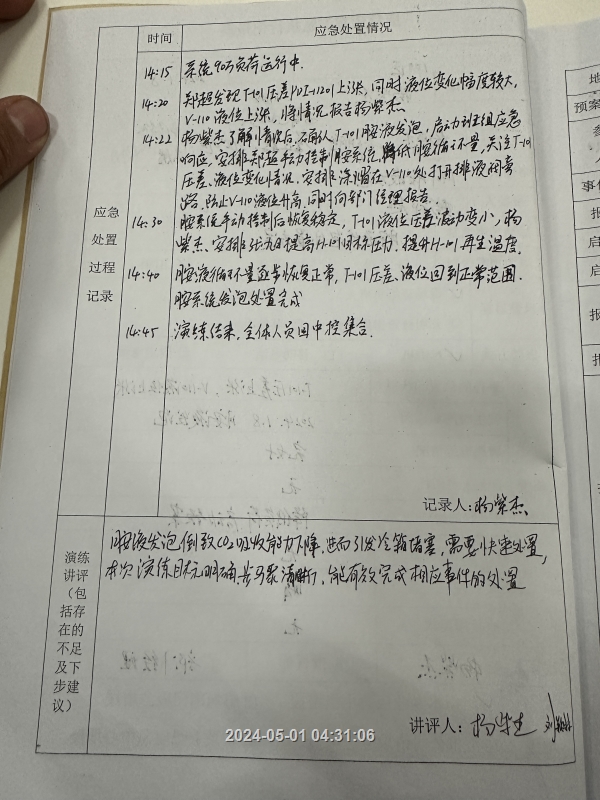 时间
应急处置情况
14:15
系统90万负荷运行中.
14:20
郑超发现T-101压差PDI-11201上涨,同时液位变化幅度较大,
V-110液位上涨,将情况报告杨紫杰.
14:22
杨紫杰了解情况后,确认T-101胺液发泡,启动班组应急
响应,安排郑超手动控制胺系统,降低胺循环量,关注T-101
压差、液位变化情况,安排涂 在V-110处打开排液阀旁
路,防止V-110液位升高,同时向部门经理报告.
14:30
胺系统手动控制后恢复稳定,T-101液位压差波动变小,杨
紫杰.安排张 提高H-101目标压力.提升H-101再生温度.
14:40
胺液循环量逐步恢复正常,T-101压差、液位回到正常范围.
胺系统发泡处置完成
14:45
演练结束,全体人员回中控集合.
应急
处置
过程
记录
记录人:杨紫杰
演练
讲评
(包
括存
在的
不足
及下
步建
议)
胺液发泡倒致CO2吸收能力下降,进而引发冷箱堵塞,需要快速处置,
本次演练目标明确.步骤清晰,能有效完成相应事件的处置
讲评人:
2024-05-01 04:31:06
地
预案
参
人
事件
报
启
启
报
报